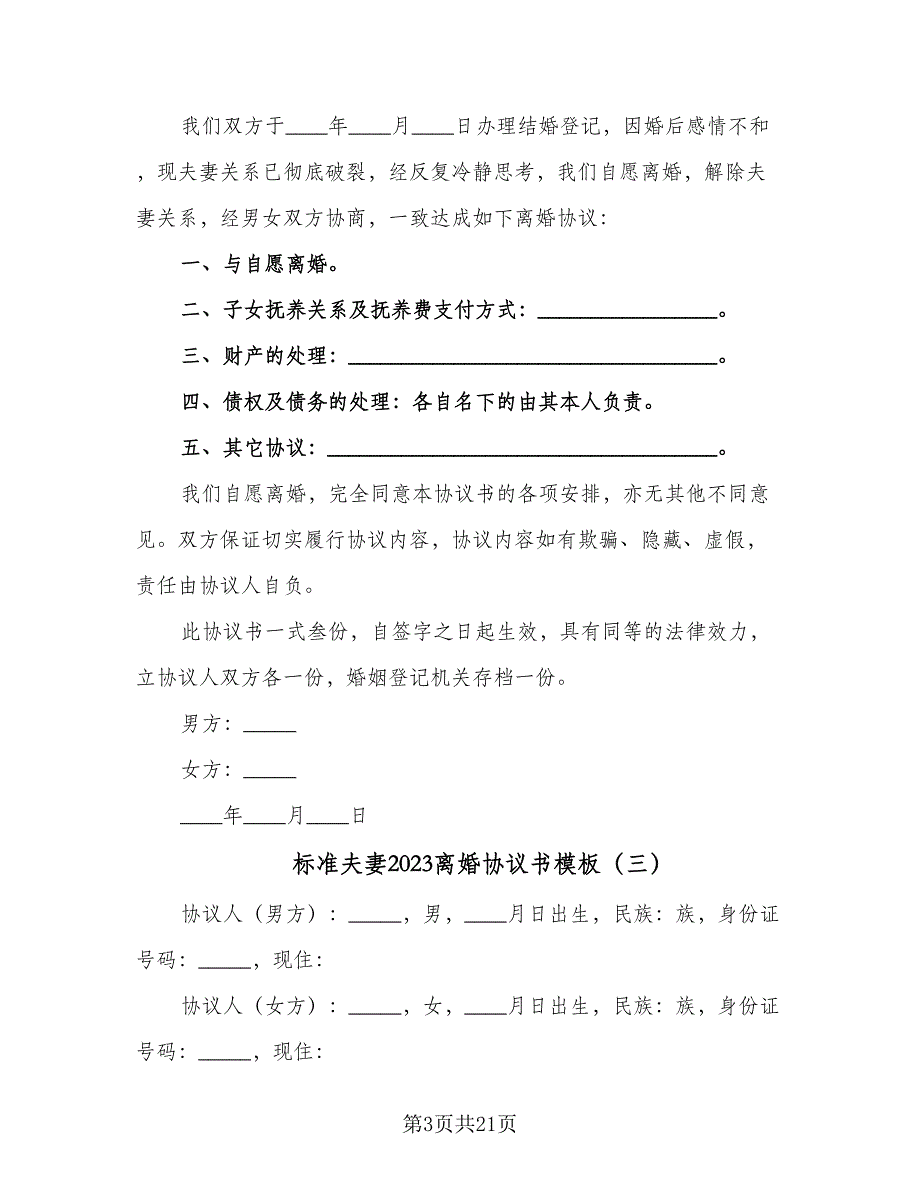 我们双方于____年____月____日办理结婚登记，因婚后感情不和
，现夫妻关系已彻底破裂，经反复冷静思考，我们自愿离婚，解除夫
妻关系，经男女双方协商，一致达成如下离婚协议：
一、与自愿离婚。
二、子女抚养关系及抚养费支付方式：_________________。
三、财产的处理：___________________________________。
四、债权及债务的处理：各自名下的由其本人负责。
五、其它协议：_____________________________________。
我们自愿离婚，完全同意本协议书的各项安排，亦无其他不同意
见。双方保证切实履行协议内容，协议内容如有欺骗、隐藏、虚假，
责任由协议人自负。
此协议书一式叁份，自签字之日起生效，具有同等的法律效力，
立协议人双方各一份，婚姻登记机关存档一份。
男方：_____
女方：_____
____年____月____日
标准夫妻2023离婚协议书模板（三）
协议人（男方）：_____，男，____月日出生，民族：族，身份证
号码：_____，现住：
协议人（女方）：_____，女，____月日出生，民族：族，身份证
号码：_____，现住：
第3页共21页